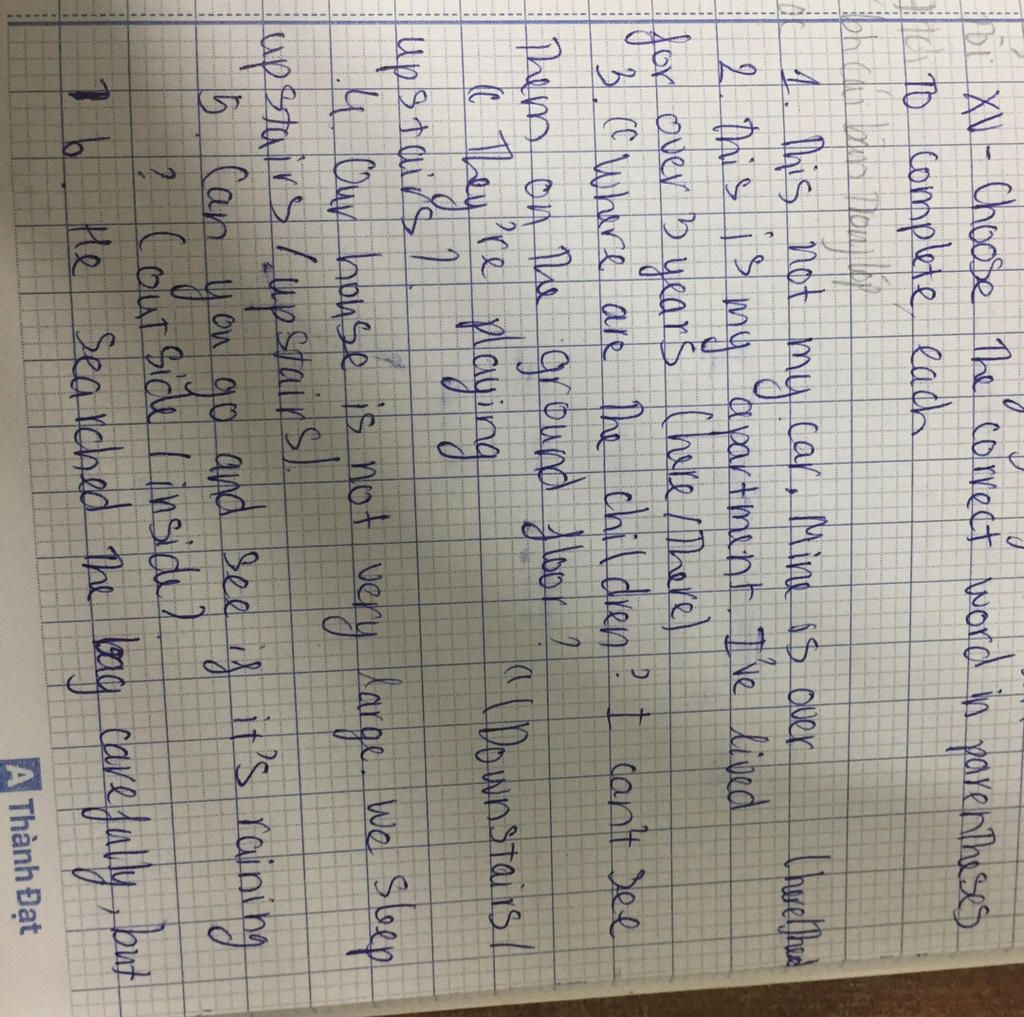 XV - Choose the correct word in parentheses
To complete each
1. This not my car. Mine is over (here/there
2. This is my apartment. I've lived
for over 3 years (here/there)
3. " Where are the children? I can't see
them on the ground floor?
" They're playing " (Downstairs/
upstairs?
4. Our house is not very large. we sleep
upstairs / upstairs)
5. Can you go and see if it's raining
? (outside / inside)
6. He searched the bag carefully, but
A Thành Đạt